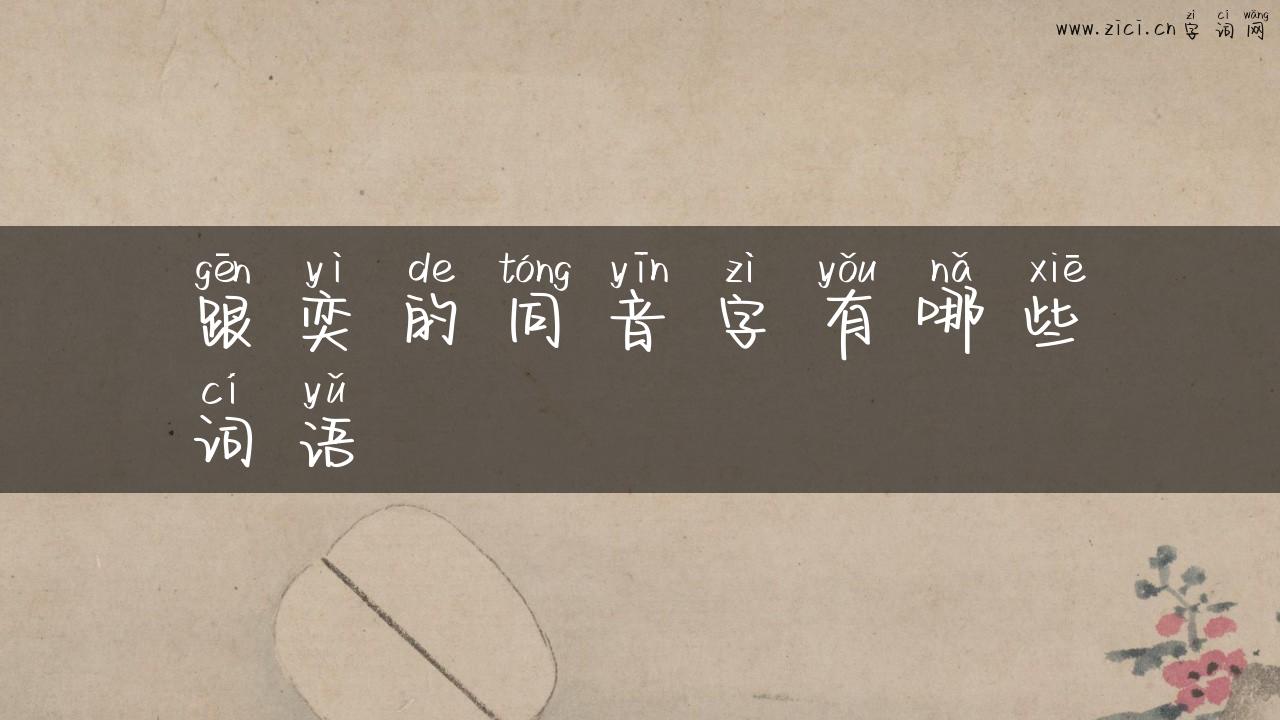 zì cí wǎng
www.zici.cn 字词网
gēn yì de tóng yīn zì yǒu nǎ xiē
跟奕的同音字有哪些
cí yǔ
词语